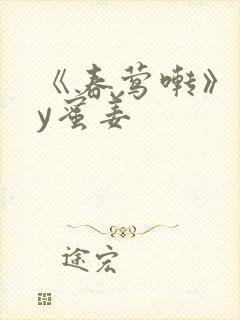 《春莺啭》
y蜜姜
途宏